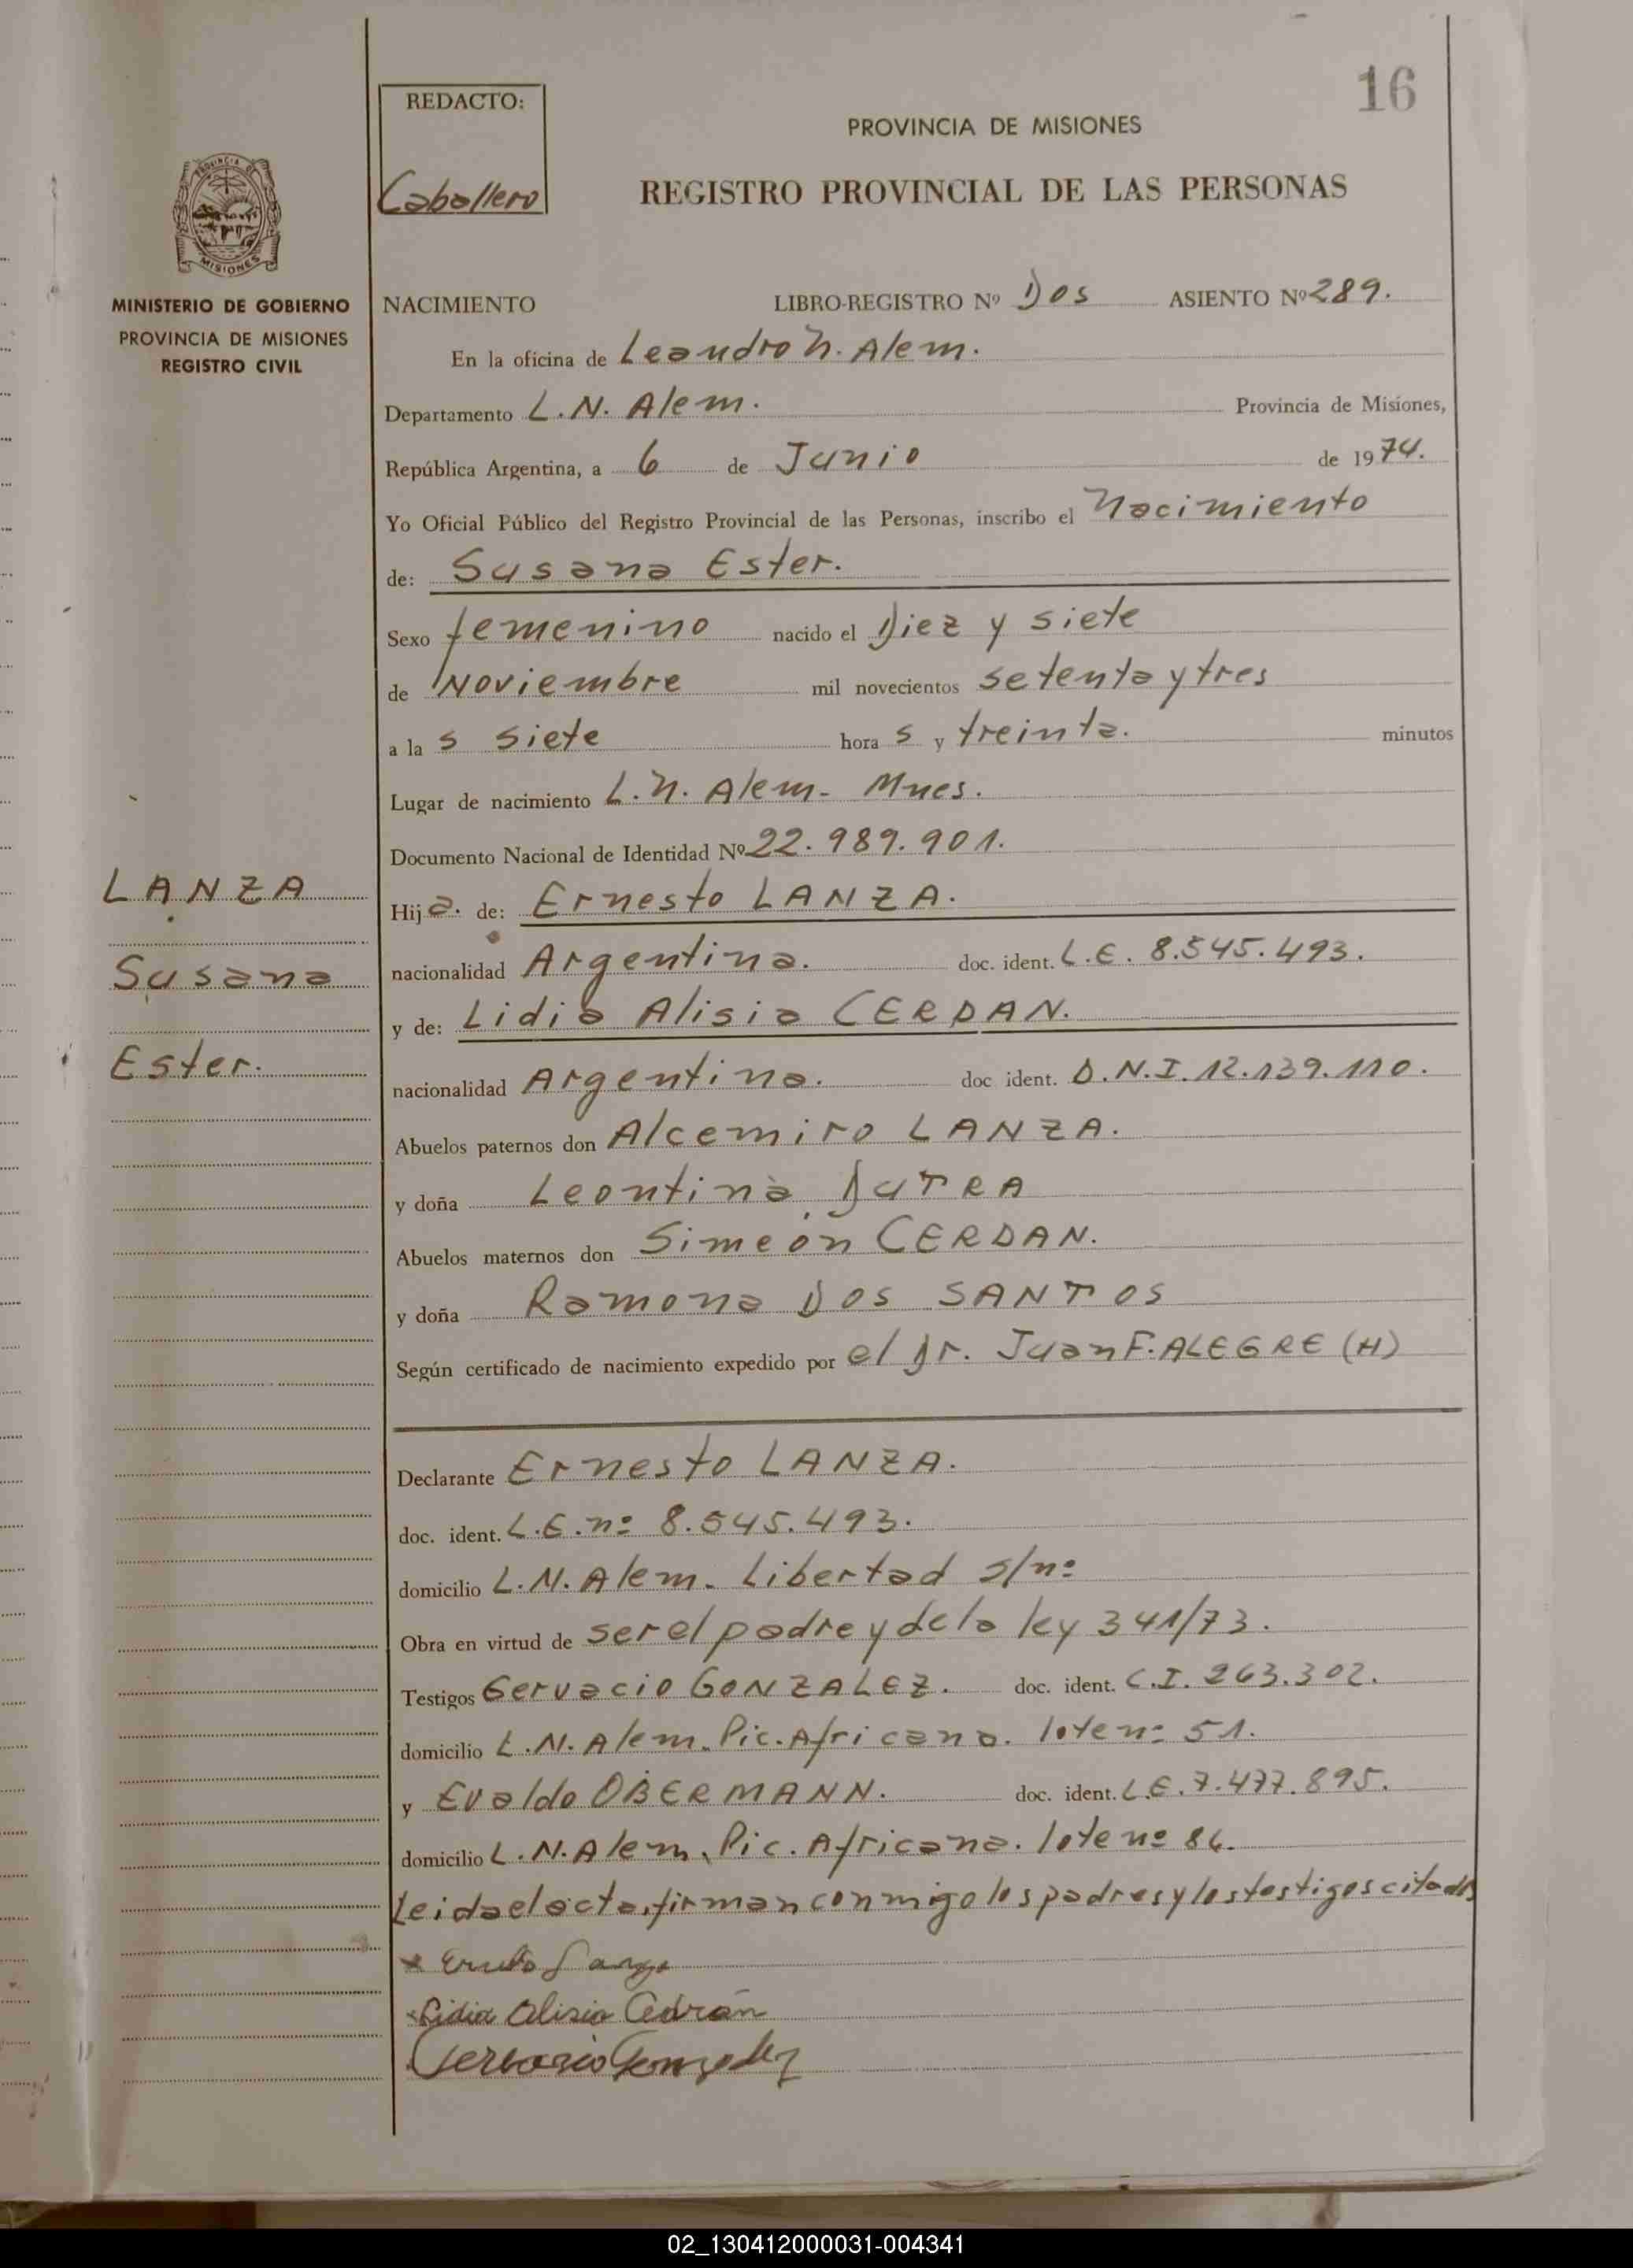 16
REDACTO:
Caballero
PROVINCIA DE MISIONES
REGISTRO PROVINCIAL DE LAS PERSONAS
PROVINCIA DE
MISIONES
MINISTERIO DE GOBIERNO
PROVINCIA DE MISIONES
REGISTRO CIVIL
NACIMIENTO LIBRO-REGISTRO Nº Dos ASIENTO Nº 289.
En la oficina de Leandro N. Alem.
Departamento L.N. Alem. Provincia de Misiones,
República Argentina, a 6 de Junio de 1974.
Yo Oficial Público del Registro Provincial de las Personas, inscribo el Nacimiento
de: Susana Ester.
Sexo femenino nacido el Diez y siete
de Noviembre mil novecientos setenta y tres
a la s siete hora s y treinta. minutos
Lugar de nacimiento L.N. Alem - Mnes.
Documento Nacional de Identidad Nº 22.989.901.
Hija. de: Ernesto LANZA.
nacionalidad Argentina. doc. ident. L.E. 8.545.493.
y de: Lidia Alisia CERDAN.
nacionalidad Argentina. doc ident. D.N.I. 12.139.110.
Abuelos paternos don Alcemiro LANZA.
y doña Leontina DUTRA
Abuelos maternos don Simeón CERDAN.
y doña Ramona DOS SANTOS
Según certificado de nacimiento expedido por el Dr. Juan F. ALEGRE (H)
LANZA
Susana
Ester.
Declarante Ernesto LANZA.
doc. ident. L.E. nº 8.545.493.
domicilio L.N. Alem. Libertad s/nº
Obra en virtud de ser el padre y de la ley 341/73.
Testigos Gervacio GONZALEZ. doc. ident. C.I. 263.302.
domicilio L.N. Alem. Pic. Africana. lote nº 51.
y Evaldo OBERMANN. doc. ident. L.E. 7.477.895.
domicilio L.N. Alem, Pic. Africana. lote nº 86.
Leida el acta, firman conmigo los padres y los testigos citados
Lidia Alisia Cedrán
Gervasio Gonzalez
02_130412000031-004341